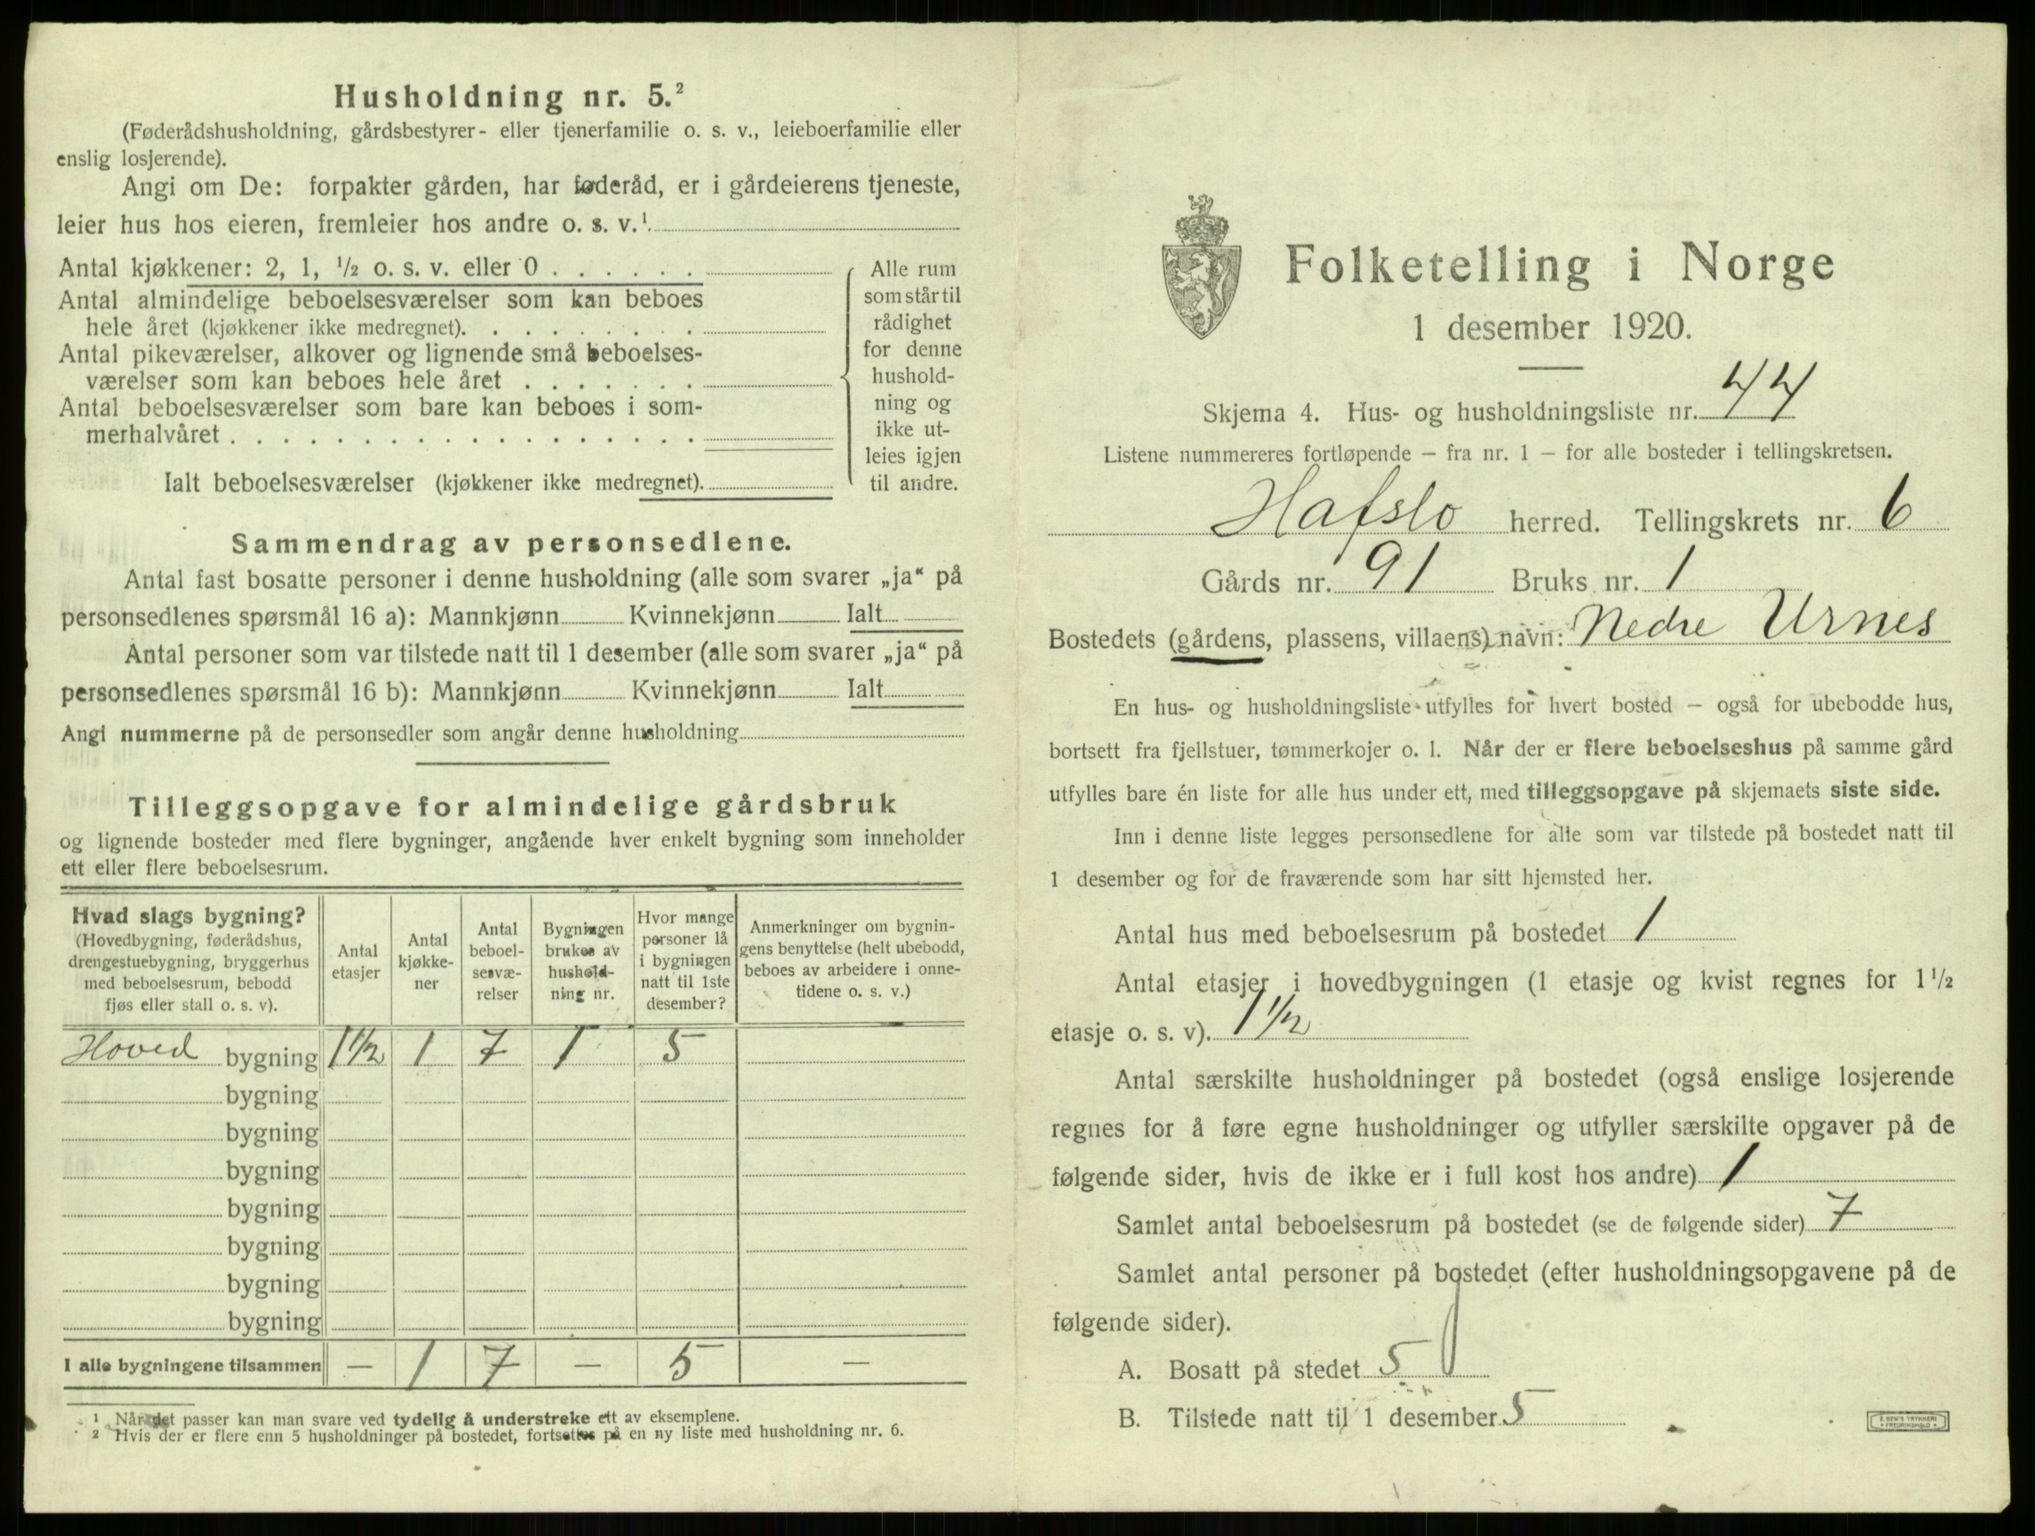 Husholdning nr. 5.²
(Føderådshusholdning, gårdsbestyrer- eller tjenerfamilie o. s. v., leieboerfamilie eller
enslig losjerende).
Angi om De: forpakter gården, har føderåd, er i gårdeierens tjeneste,
leier hus hos eieren, fremleier hos andre o. s. v.¹
Antal kjøkkener: 2, 1, ½ o. s. v. eller 0 . . . . . .
Antal almindelige beboelsesværelser som kan beboes
hele året (kjøkkener ikke medregnet). . . . . . . . .
Antal pikeværelser, alkover og lignende små beboelses-
værelser som kan beboes hele året . . . . . . .
Antal beboelsesværelser som bare kan beboes i som-
merhalvåret . . . . . . . . . . . . . . . . . .
Ialt beboelsesværelser (kjøkkener ikke medregnet).
Alle rum
som står til
rådighet
for denne
hushold-
ning og
ikke ut-
leies igjen
til andre.
Sammendrag av personsedlene.
Antal fast bosatte personer i denne husholdning (alle som svarer „ja“ på
personsedlenes spørsmål 16 a): Mannkjønn Kvinnekjønn Ialt
Antal personer som var tilstede natt til 1 desember (alle som svarer „ja“ på
personsedlenes spørsmål 16 b): Mannkjønn Kvinnekjønn Ialt
Angi nummerne på de personsedler som angår denne husholdning
Tilleggsopgave for almindelige gårdsbruk
og lignende bosteder med flere bygninger, angående hver enkelt bygning som inneholder
ett eller flere beboelsesrum.
Hvad slags bygning?
(Hovedbygning, føderådshus,
drengestuebygning, bryggerhus
med beboelsesrum, bebodd
fjøs eller stall o. s. v).
Antal
etasjer
Antal
kjøkke-
ner
Antal
beboel-
sesvæ-
relser
Bygningen
brukes av
hushold-
ning nr.
Hvor mange
personer lå
i bygningen
natt til 1ste
desember?
Anmerkninger om bygnin-
gens benyttelse (helt ubebodd,
beboes av arbeidere i onne-
tidene o. s. v.)
Hoved bygning 1½ 1 7 1 5
bygning
bygning
bygning
bygning
bygning
bygning
bygning
I alle bygningene tilsammen — 1 7 — 5 —
¹ Når det passer kan man svare ved tydelig å understreke ett av eksemplene.
² Hvis der er flere enn 5 husholdninger på bostedet, fortsettes på en ny liste med husholdning nr. 6.
Folketelling i Norge
1 desember 1920.
Skjema 4. Hus- og husholdningsliste nr. 44
Listene nummereres fortløpende – fra nr. 1 – for alle bosteder i tellingskretsen.
Hafslo herred. Tellingskrets nr. 6
Gårds nr. 91 Bruks nr. 1
Bostedets (gårdens, plassens, villaens) navn: Nedre Urnes
En hus- og husholdningsliste utfylles for hvert bosted – også for ubebodde hus,
bortsett fra fjellstuer, tømmerkojer o. l. Når der er flere beboelseshus på samme gård
utfylles bare én liste for alle hus under ett, med tilleggsopgave på skjemaets siste side.
Inn i denne liste legges personsedlene for alle som var tilstede på bostedet natt til
1 desember og for de fraværende som har sitt hjemsted her.
Antal hus med beboelsesrum på bostedet 1
Antal etasjer i hovedbygningen (1 etasje og kvist regnes for 1½
etasje o. s. v). 1½
Antal særskilte husholdninger på bostedet (også enslige losjerende
regnes for å føre egne husholdninger og utfyller særskilte opgaver på de
følgende sider, hvis de ikke er i full kost hos andre) 1
Samlet antal beboelsesrum på bostedet (se de følgende sider) 7
Samlet antal personer på bostedet (efter husholdningsopgavene på de
følgende sider).
A. Bosatt på stedet 5
B. Tilstede natt til 1 desember 5